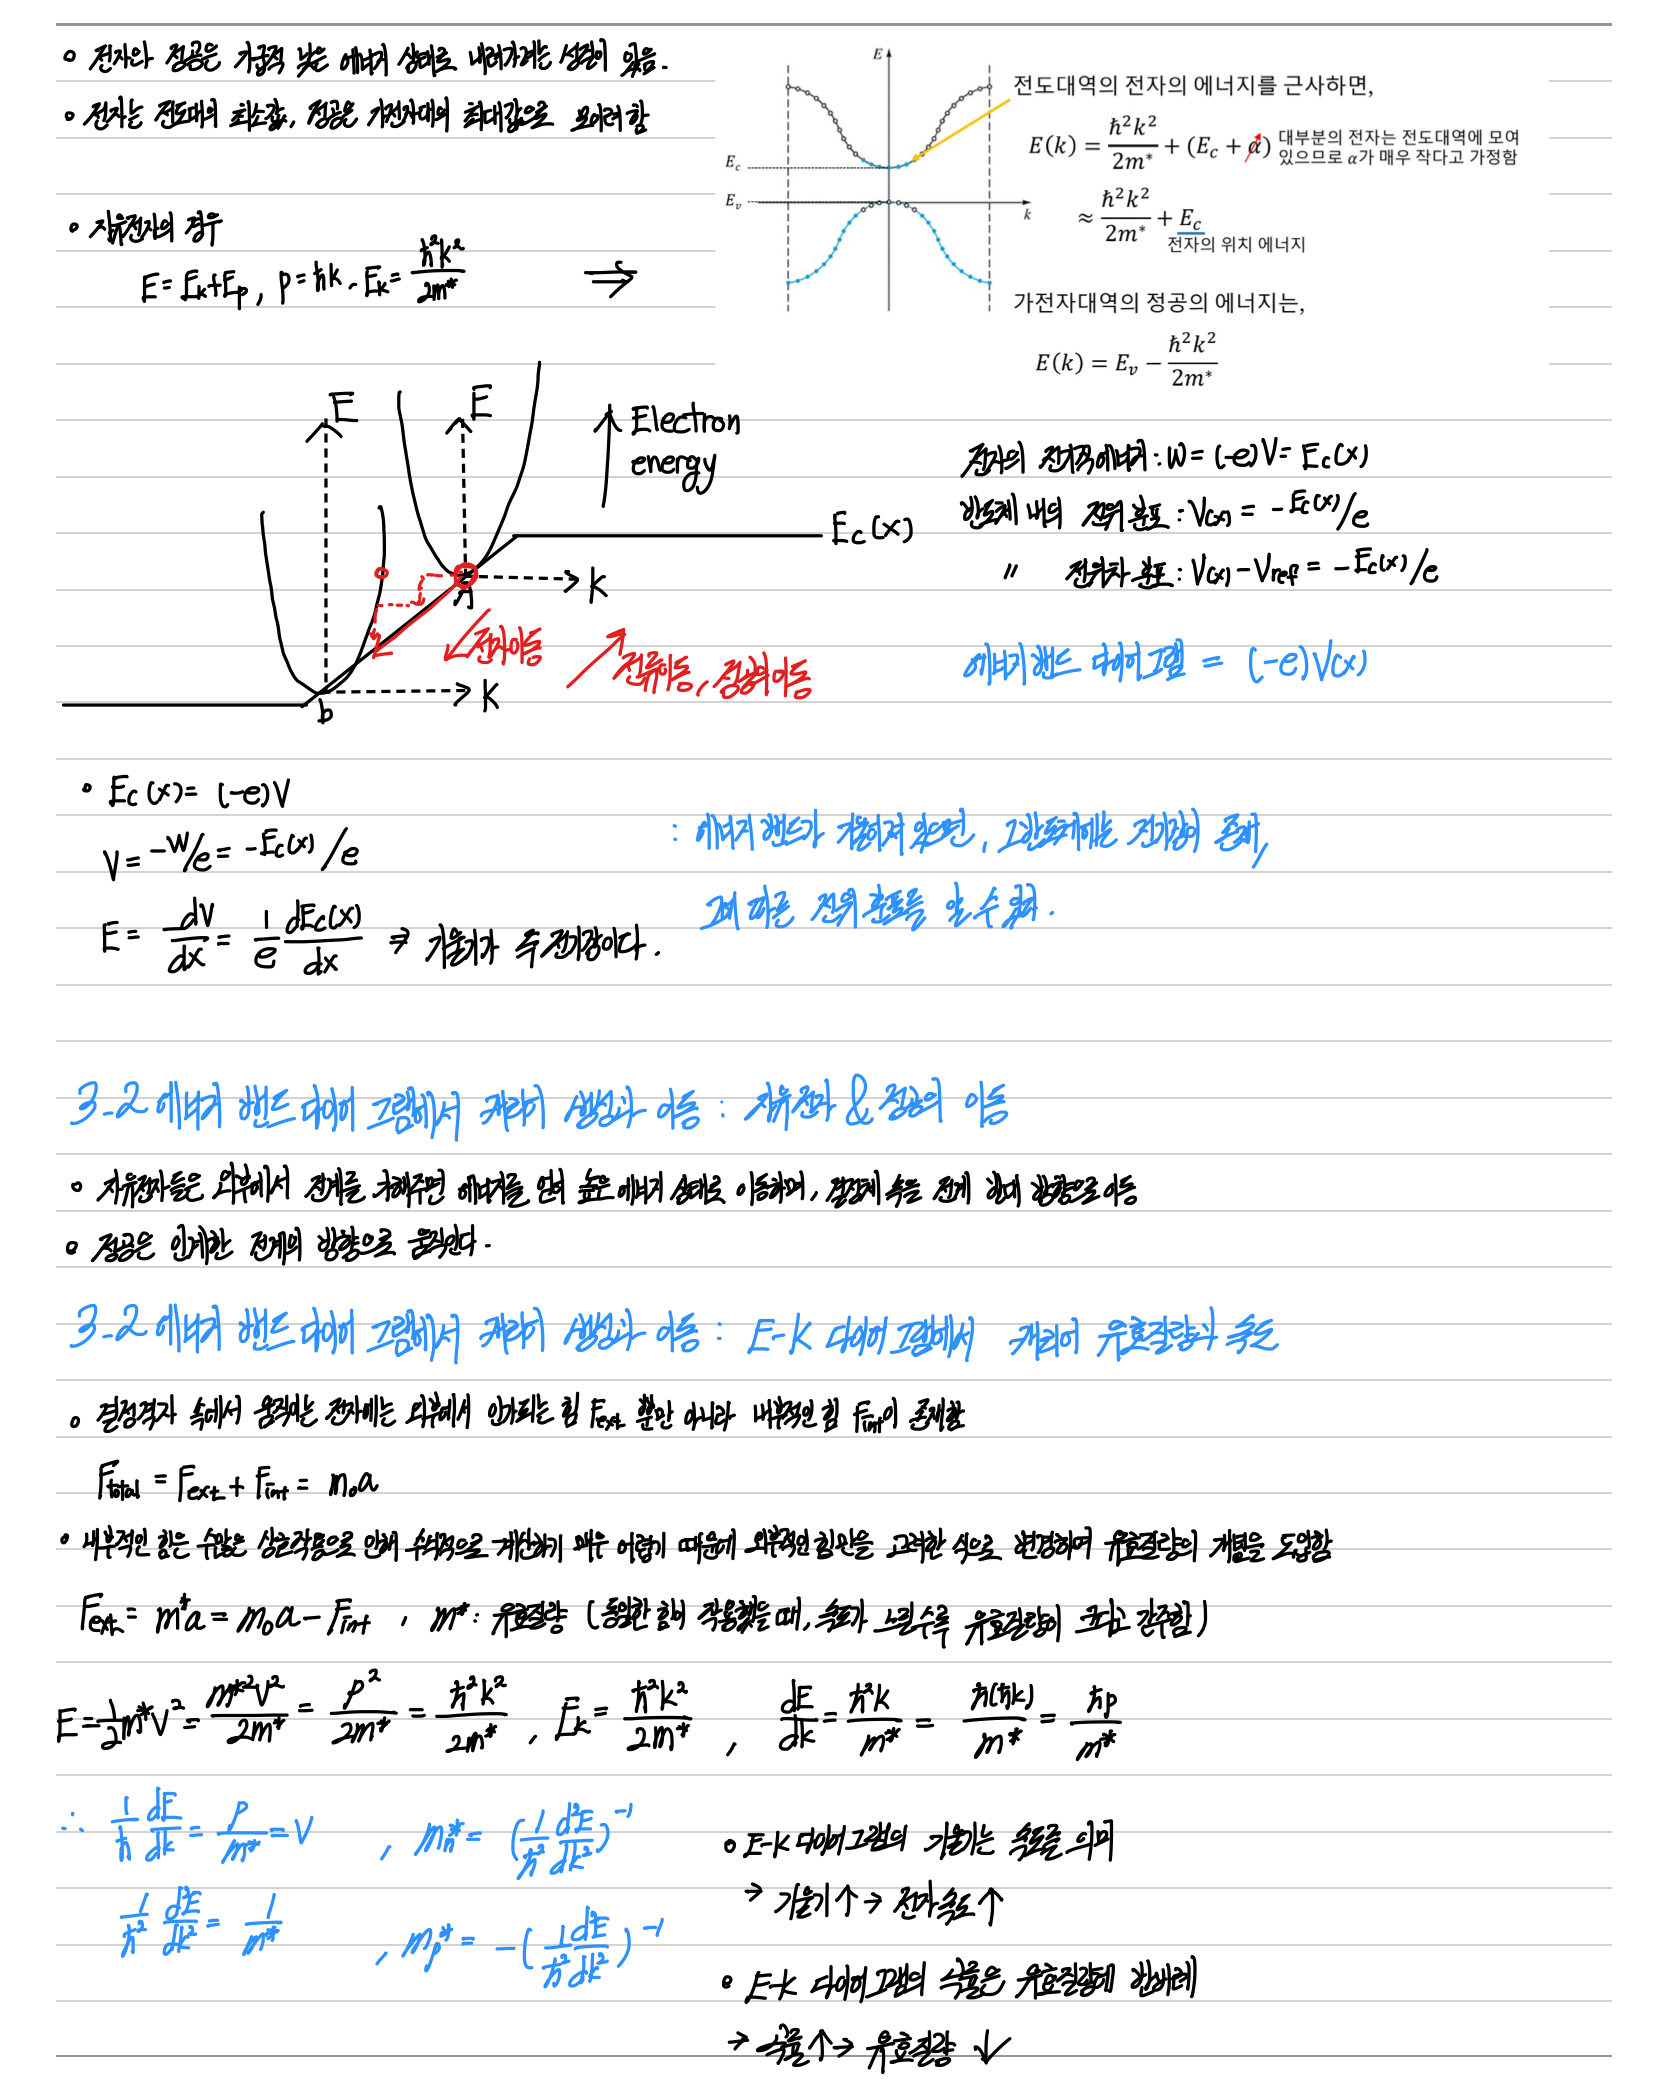 전자와 정공은 가급적 낮은 에너지 상태로 내려가려는 성질이 있음.
전자는 전도대의 최소값, 정공은 가전자대의 최대값으로 모이려 함
자유전자의 경우
E = E_k + E_p, p = ħk, E_k = ħ²k²/2m* ⇒
E
E_c
E_v
k
전도대역의 전자의 에너지를 근사하면,
E(k) = ħ²k²/2m* + (E_c + α) 대부분의 전자는 전도대역에 모여
있으므로 α가 매우 작다고 가정함
≈ ħ²k²/2m* + E_c
전자의 위치 에너지
가전자대역의 정공의 에너지는,
E(k) = E_v − ħ²k²/2m*
E
E
Electron
energy
E_c(x)
k
전자이동
전류이동, 정공의 이동
k
b
전자의 전기적에너지 : W = (-e)V = E_c(x)
반도체 내의 전위 분포 : V(x) = -E_c(x)/e
〃 전위차 분포 : V(x) - V_ref = -E_c(x)/e
에너지 밴드 다이어그램 = (-e)V(x)
E_c(x) = (-e)V
V = -W/e = -E_c(x)/e
E = -dV/dx = 1/e dE_c(x)/dx ⇒ 기울기가 즉 전기장이다.
: 에너지 밴드가 기울어져 있으면, 그 반도체에는 전기장이 존재,
그에 따른 전위 분포를 알 수 있다.
3-2 에너지 밴드 다이어 그램에서 캐리어 생성과 이동 : 자유전자 & 정공의 이동
자유전자들은 외부에서 전계를 가해주면 에너지를 얻어 높은 에너지 상태로 이동하며, 결정체 속을 전계 반대 방향으로 이동
정공은 인계한 전계의 방향으로 움직인다.
3-2 에너지 밴드 다이어 그램에서 캐리어 생성과 이동 : E-k 다이어 그램에서 캐리어 유효질량과 속도
결정격자 속에서 움직이는 전자에는 외부에서 인가되는 힘 F_ext 뿐만 아니라 내부적인 힘 F_int이 존재함
F_total = F_ext + F_int = m₀a
내부적인 힘은 수많은 상호작용으로 인해 수식적으로 계산하기 매우 어렵기 때문에 외부적인 힘만을 고려한 식으로 변경하여 유효질량의 개념을 도입함
F_ext = m*a = m₀a - F_int , m* : 유효질량 (동일한 힘이 작용했을 때, 속도가 느릴수록 유효질량이 크다고 간주함)
E = 1/2 m*V² = m*²V²/2m* = p²/2m* = ħ²k²/2m* , E_k = ħ²k²/2m* , dE/dk = ħ²k/m* = ħ(ħk)/m* = ħp/m*
∴ 1/ħ dE/dk = p/m* = V , m_n* = (1/ħ² d²E/dk²)⁻¹
1/ħ² d²E/dk² = 1/m* , m_p* = -(1/ħ² d²E/dk²)⁻¹
E-k 다이어 그램의 기울기는 속도를 의미
→ 기울기↑ → 전자속도↑
E-k 다이어 그램의 곡률은 유효질량에 반비례
→ 곡률↑ → 유효질량 ↓